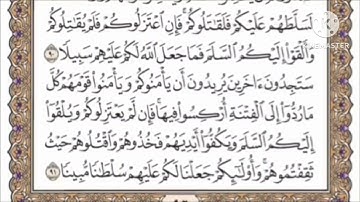 لَسَلَّطَهُمْ عَلَيْكُمْ فَلَقَٰتَلُوكُمْ ۚ فَإِنِ ٱعْتَزَلُوكُمْ فَلَمْ يُقَٰتِلُوكُمْ
وَأَلْقَوْا۟ إِلَيْكُمُ ٱلسَّلَمَ فَمَا جَعَلَ ٱللَّهُ لَكُمْ عَلَيْهِمْ سَبِيلًا ٩٠
سَتَجِدُونَ ءَاخَرِينَ يُرِيدُونَ أَن يَأْمَنُوكُمْ وَيَأْمَنُوا۟ قَوْمَهُمْ كُلَّ
مَا رُدُّوٓا۟ إِلَى ٱلْفِتْنَةِ أُرْكِسُوا۟ فِيهَا ۚ فَإِن لَّمْ يَعْتَزِلُوكُمْ وَيُلْقُوٓا۟
إِلَيْكُمُ ٱلسَّلَمَ وَيَكُفُّوٓا۟ أَيْدِيَهُمْ فَخُذُوهُمْ وَٱقْتُلُوهُمْ حَيْثُ
ثَقِفْتُمُوهُمْ ۚ وَأُو۟لَٰٓئِكُمْ جَعَلْنَا لَكُمْ عَلَيْهِمْ سُلْطَٰنًا مُّبِينًا ٩١